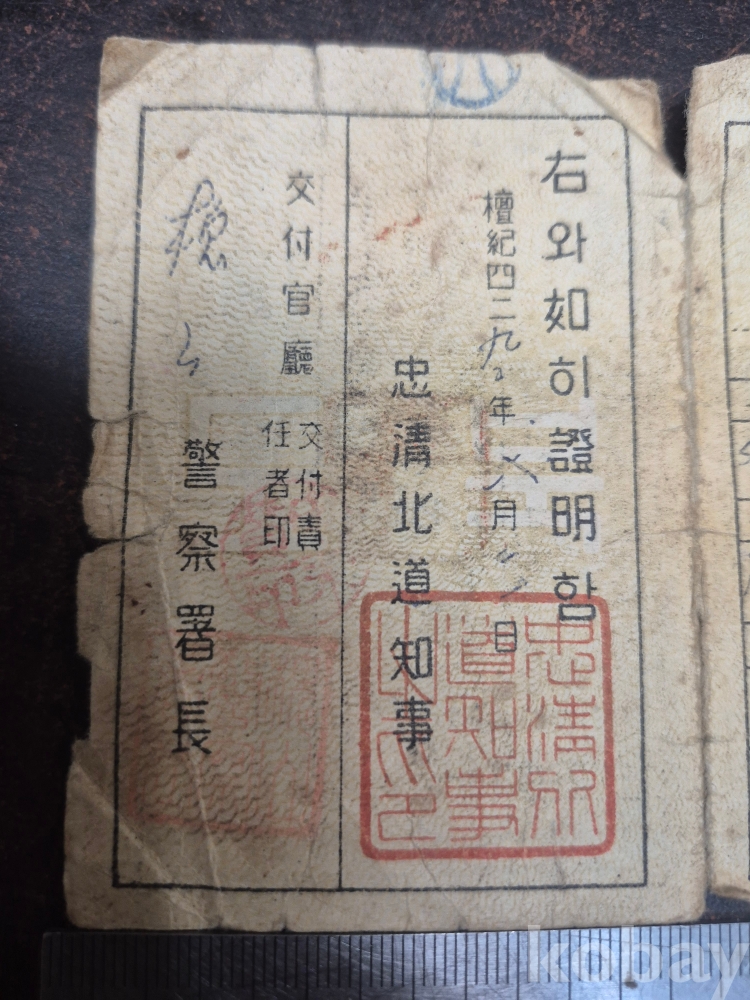 右와如히證明함
檀紀四二九 年 月 日
忠淸北道知事
忠淸北
道知事
交付官廳
交付責
任者印
警察署長
kobay